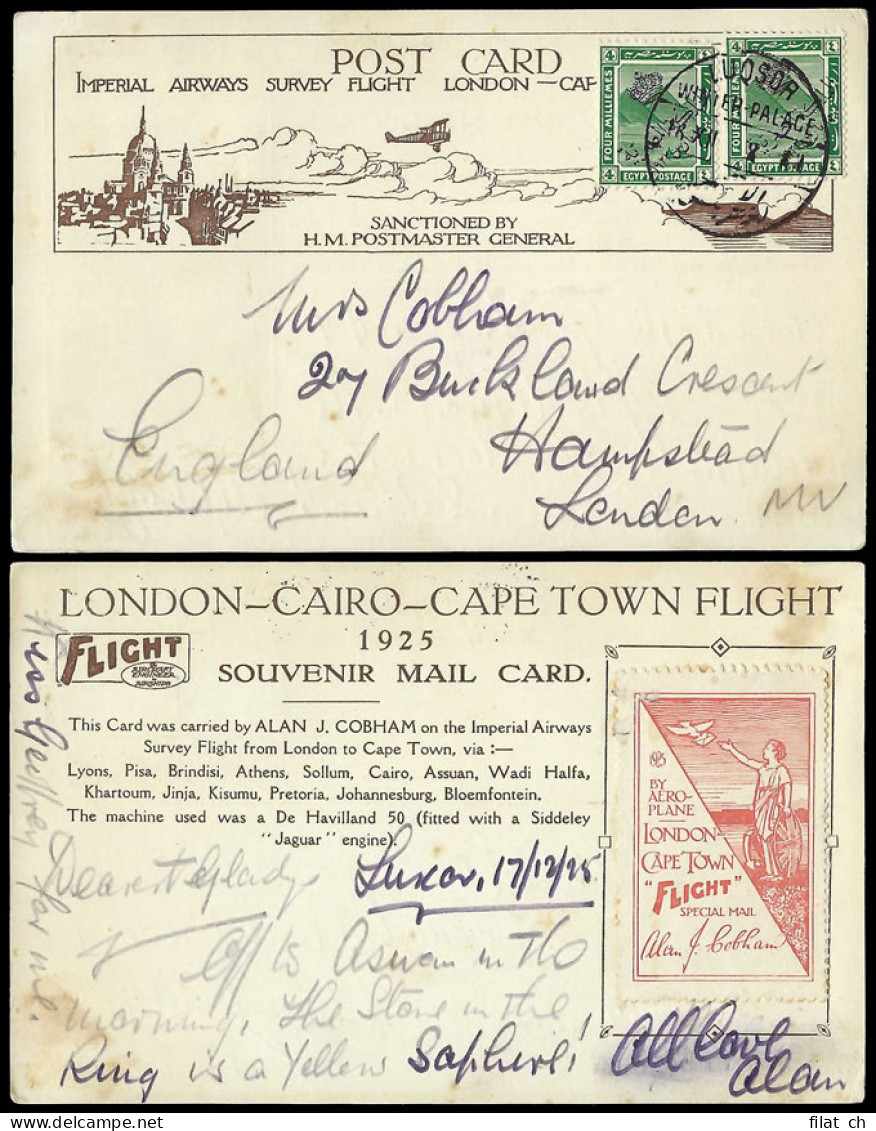 POST CARD
IMPERIAL AIRWAYS SURVEY FLIGHT LONDON—CAP
SANCTIONED BY
H.M. POSTMASTER GENERAL
4 4
FOUR MILLIEMES
4 EGYPT POSTAGE
4 4
FOUR MILLIEMES
4 EGYPT POSTAGE
LUQSOR
WINTER-PALACE
Mrs Cobham
27 Buckland Crescent
Hampstead
London
England
LONDON—CAIRO—CAPE TOWN FLIGHT
1925
SOUVENIR MAIL CARD.
FLIGHT
& AIRCRAFT ENGINEER & AIRSHIPS
This Card was carried by ALAN J. COBHAM on the Imperial Airways
Survey Flight from London to Cape Town, via :—
Lyons, Pisa, Brindisi, Athens, Sollum, Cairo, Assuan, Wadi Halfa,
Khartoum, Jinja, Kisumu, Pretoria, Johannesburg, Bloemfontein.
The machine used was a De Havilland 50 (fitted with a Siddeley
"Jaguar" engine).
1925
BY
AERO-
PLANE
LONDON-
CAPE TOWN
"FLIGHT"
SPECIAL MAIL
Alan J. Cobham
Luxor, 17/12/25
Dearest Gladys
Off to Asuan in the
morning, the Stone in the
Ring is a Yellow Saphire!
All Love
Alan
Kiss Geoffrey for me.
filat ch